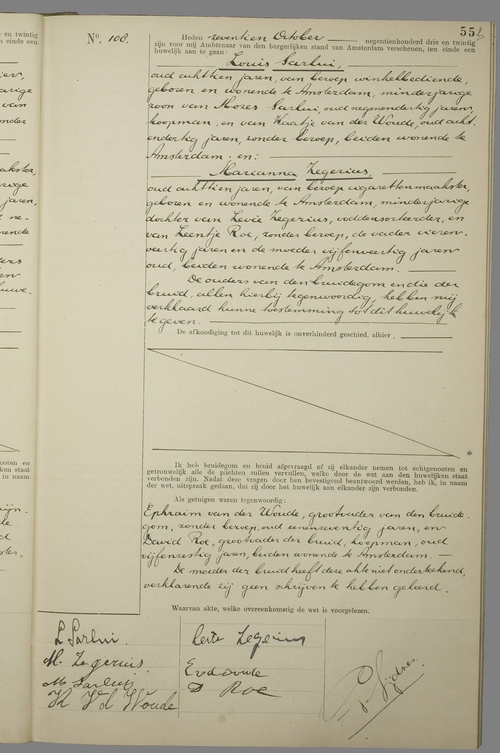 55
No. 108.
Heden zeventien October negentienhonderd drie en twintig
zijn voor mij Ambtenaar van den burgerlijken stand van Amsterdam verschenen, ten einde een
huwelijk aan te gaan:
Louis Sarlui,
oud achttien jaren, van beroep winkelbediende,
geboren en wonende te Amsterdam, minderjarige
zoon van Mozes Sarlui, oud negenendertig jaren,
koopman, en van Kaatje van der Woude, oud acht
endertig jaren, zonder beroep, beiden wonende te
Amsterdam; en:
Marianna Zegerius
oud achttien jaren, van beroep cigarettenmaakster,
geboren en wonende te Amsterdam, minderjarige
dochter van Levie Zegerius, voddensorteerder, en
van Leentje Roe, zonder beroep, de vader vieren-
veertig jaren en de moeder vijfenveertig jaren
oud, beiden wonende te Amsterdam.
De ouders van den bruidegom en die der
bruid, allen hierbij tegenwoordig, hebben mij
verklaard hunne toestemming tot dit huwelijk
te geven.
De afkondiging tot dit huwelijk is onverhinderd geschied, alhier.
Ik heb bruidegom en bruid afgevraagd of zij elkander nemen tot echtgenooten en
getrouwelijk alle de plichten zullen vervullen, welke door de wet aan den huwelijken staat
verbonden zijn. Nadat deze vragen door hen bevestigend beantwoord werden, heb ik, in naam
der wet, uitspraak gedaan, dat zij door het huwelijk aan elkander zijn verbonden.
Als getuigen waren tegenwoordig:
Ephraim van der Woude, grootvader van den bruide-
gom, zonder beroep, oud eenenzeventig jaren, en
David Roe, grootvader der bruid, koopman, oud
vijfenzestig jaren, beiden wonende te Amsterdam.
De moeder der bruid heeft deze akte niet onderteekend,
verklarende zij geen schrijven te hebben geleerd.
Waarvan akte, welke overeenkomstig de wet is voorgelezen.
L Sarlui.
M. Zegerius.
M Sarluij
K V d Woude
Levie Zegerius
E v d Woude
D Roe